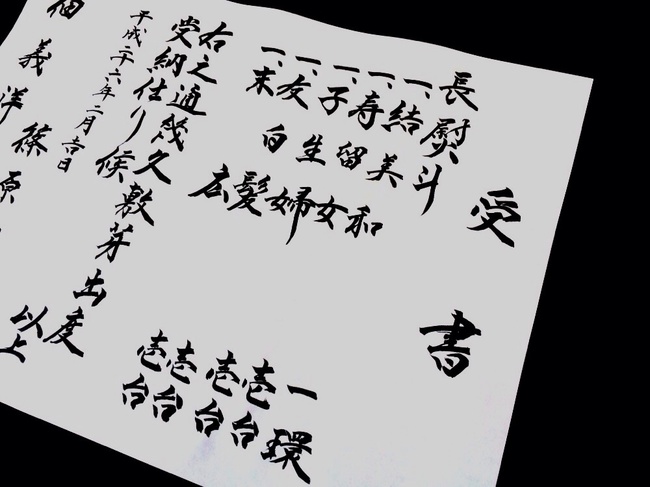 受書
長熨斗
一、結美和 一環
一、寿留女 壱台
一、子生婦 壱台
一、友白髪 壱台
一、末広 壱台
右之通幾久敷芽出度
受納仕り候 以上
平成二十六年二月吉日
篠原
義洋